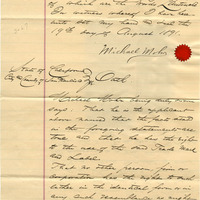 of which are the words
In witness whereof I have here
unto set my hand and seal the
19th day of August 1891.
Michael Mohr
State of California
City & County of
Oath
Michael Mohr being duly sworn
says: That he is the applicant
above named that the facts stated
in the foregoing statements are
true that he has the right
to the use of the said Trade Mark
and Label.
That no other person, firm or
corporation has the right to such
either in the identical form or in
any such resemblance as might